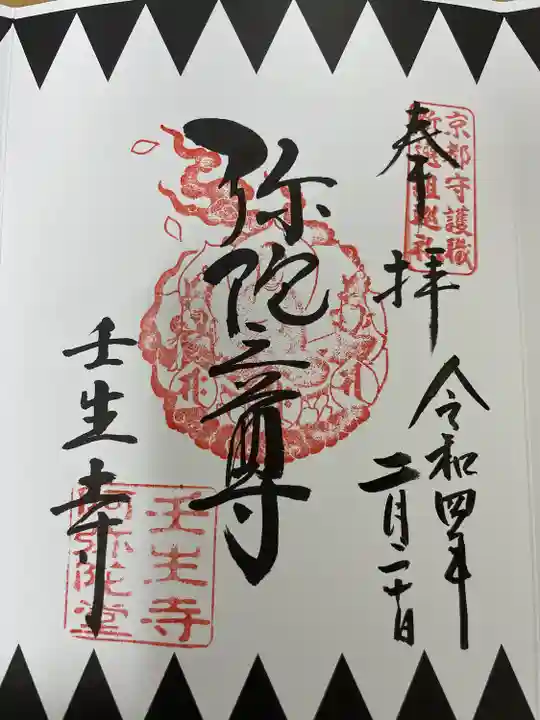 奉拝
京都守護職
新選組巡礼
令和四年
二月二十日
弥陀三尊
壬生寺
壬生寺
阿弥陀堂